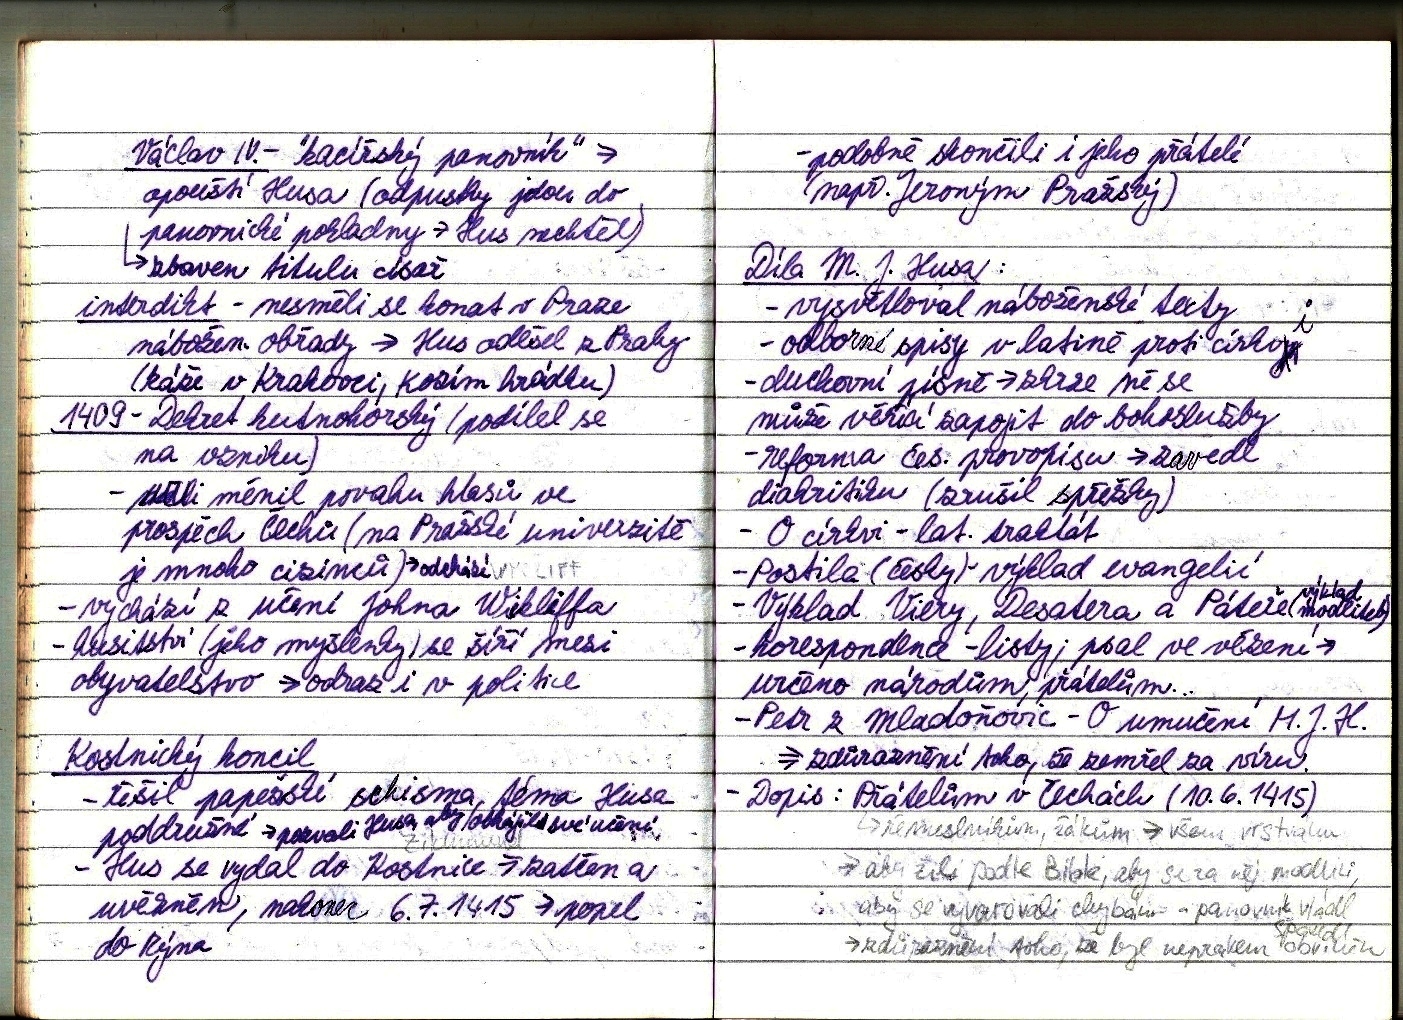 Václav IV. - "kacířský panovník" →
opouští Husa (odpustky jdou do
panovnické pokladny → Hus nechtěl)
→ zbaven titulu císař
interdikt - nesměli se konat v Praze
nábožen. obřady → Hus odešel z Prahy
(káže v Krakovci, Kozím hrádku)
1409 - Dekret kutnohorský (podílel se
na vzniku)
- měnil povahu hlasů ve
prospěch Čechů (na Pražské univerzitě
je mnoho cizinců) → odchází
WYCLIFF
- vychází z učení Johna Wikleffa
- husitství (jeho myšlenky) se šíří mezi
obyvatelstvo → odraz i v politice
Kostnický koncil
- řešil papežské schisma, téma Husa
podružné → pozvali Husa aby obhájil své učení
Zikmund
- Hus se vydal do Kostnice → zatčen a
uvězněn, nakonec 6.7.1415 → popel
do Rýna
- podobně skončili i jeho přátelé
(např. Jeroným Pražský)
Díla M. J. Husa:
- vysvětloval náboženské texty
- odborné spisy v latině proti církvi
- duchovní písně → skrze ně se
může věřící zapojit do bohoslužby
- reforma čes. pravopisu → zavedl
diakritiku (zrušil spřežky)
- O církvi - lat. traktát
- Postila (česky) - výklad evangelií
- Výklad Viery, Desatera a Páteře (výklad modliteb)
- korespondence - listy; psal ve vězení →
určeno národům, přátelům...
- Petr z Mladoňovic - O umučení M. J. H.
⇒ zdůraznění toho, že zemřel za víru.
- Dopis: Přátelům v Čechách (10.6.1415)
↳ řemeslníkům, žákům → všem vrstvám
→ aby žili podle Bible, aby se za něj modlili,
aby se vyvarovali chybám - panovník vládl
spravedl.
→ zdůraznění toho, že byl neprávem obviněn